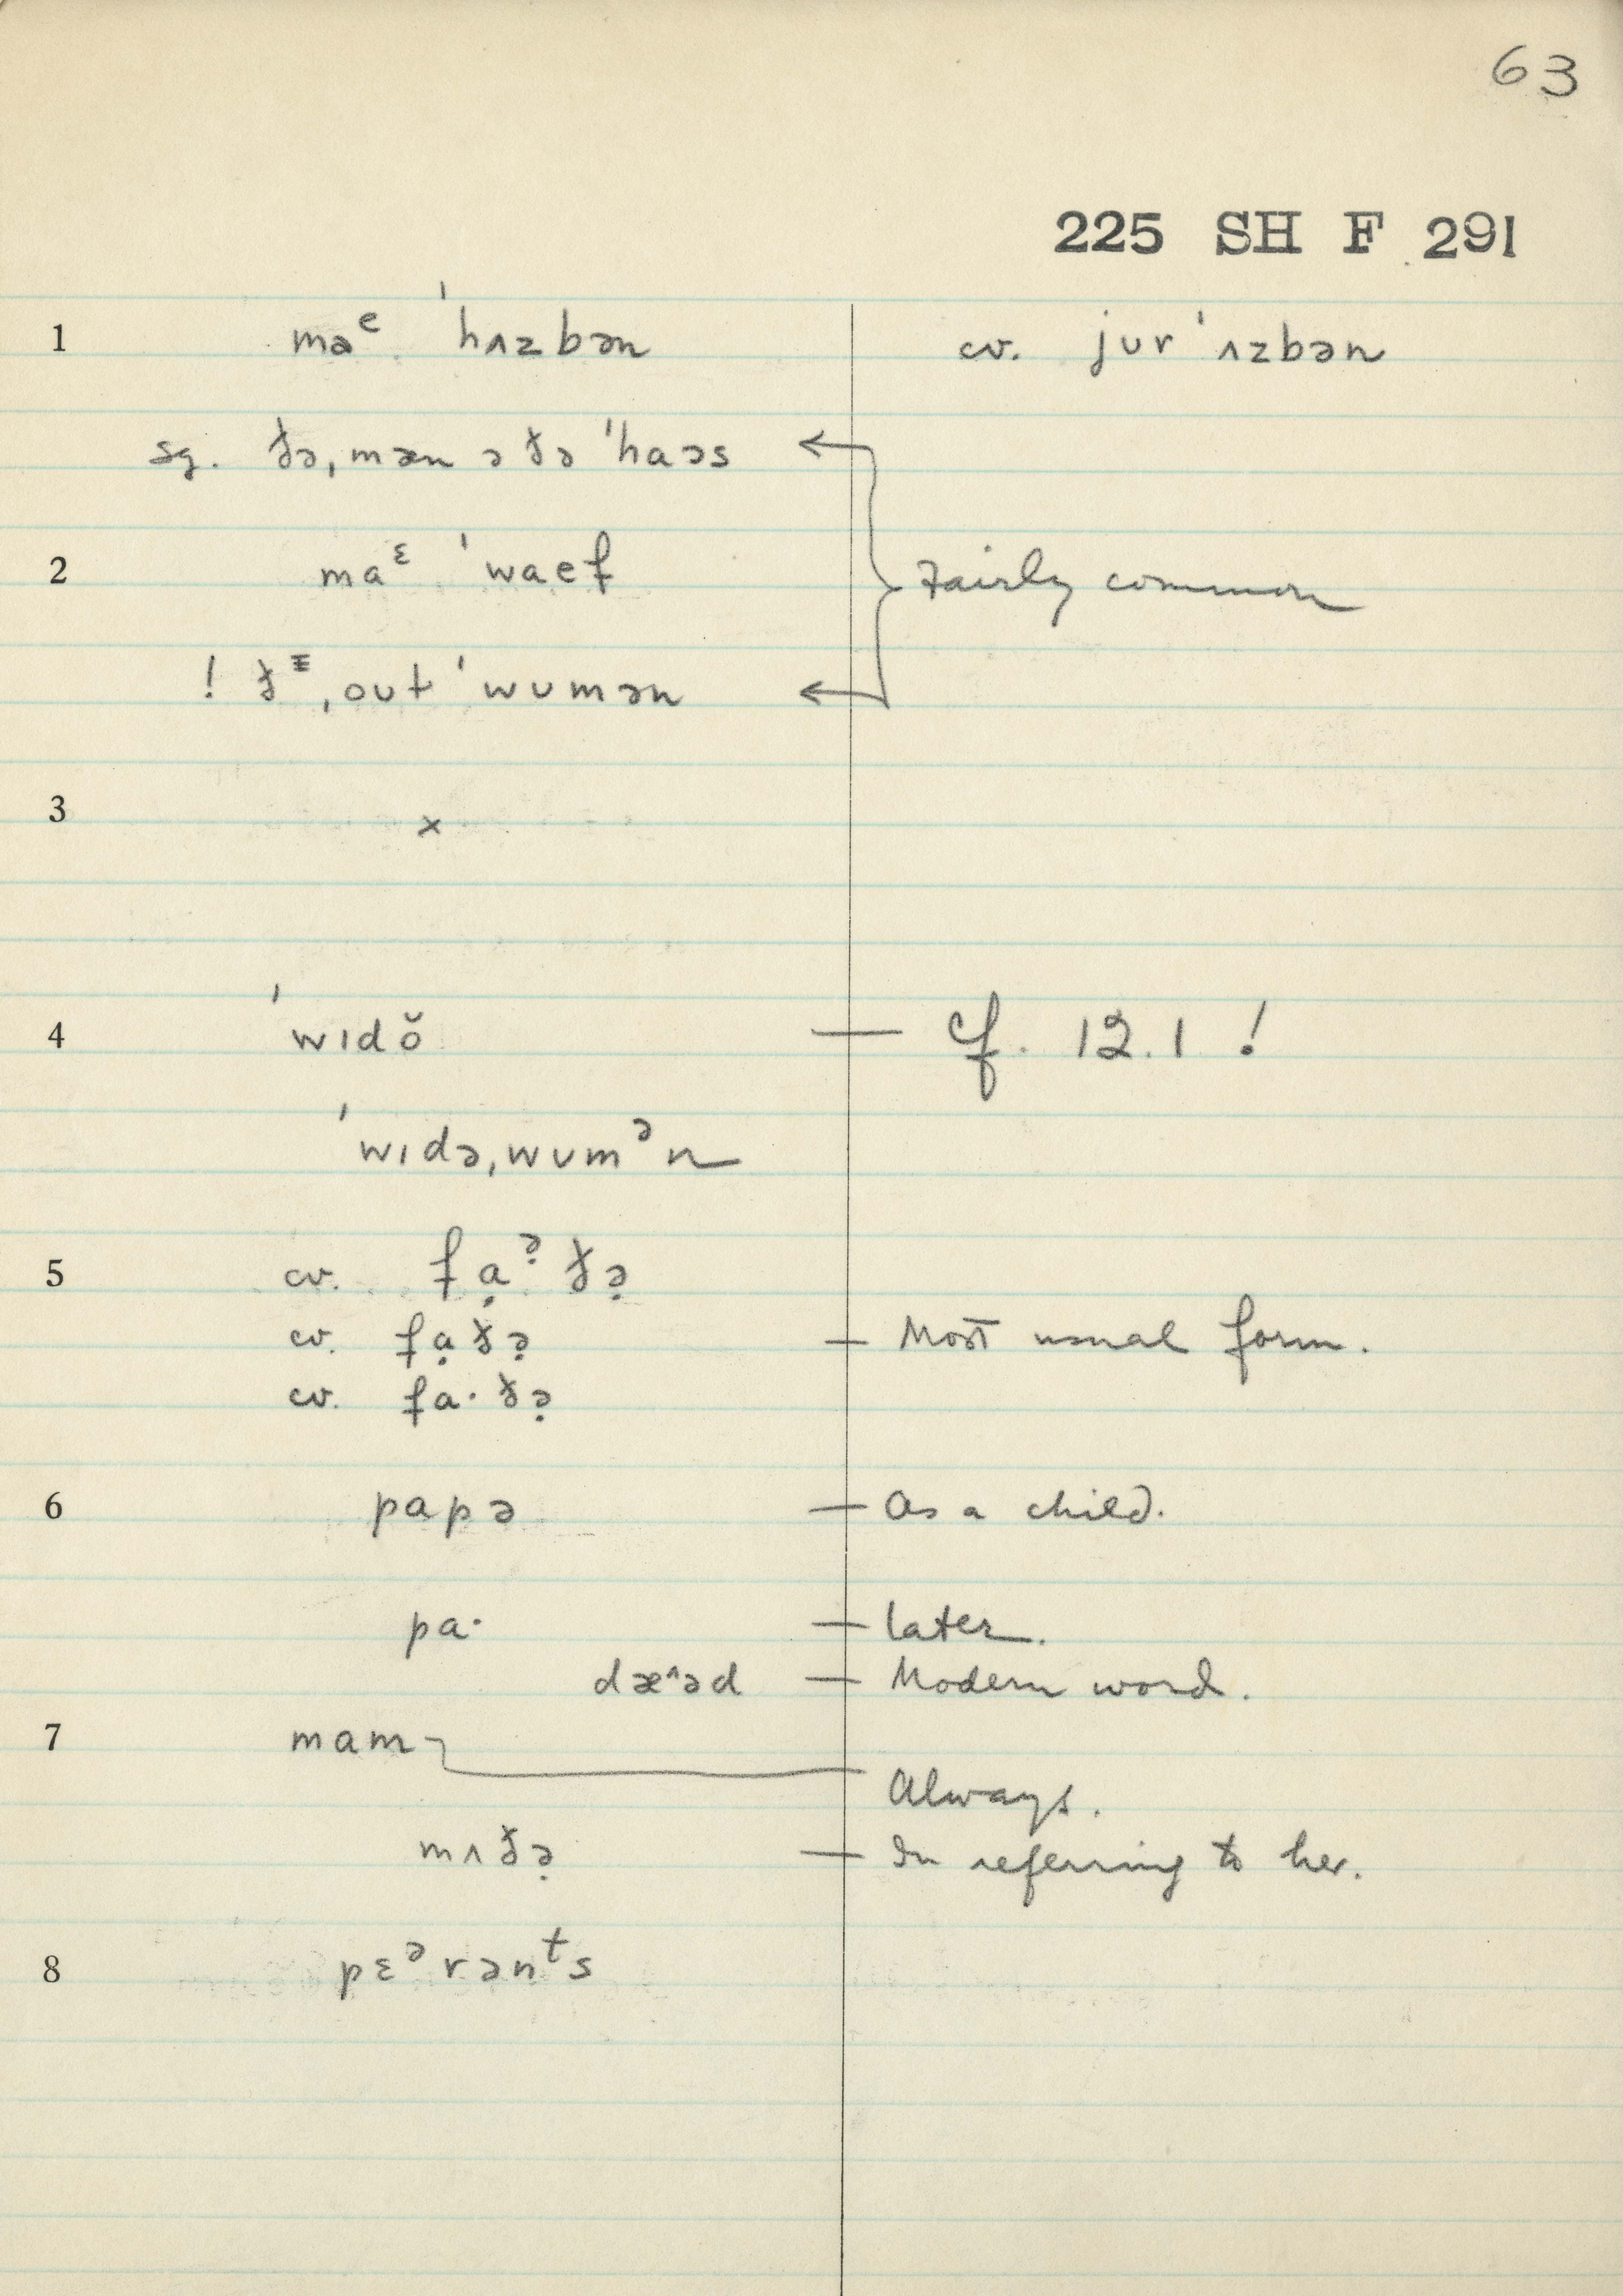 63
225 SH F 291
1 maᵉ ˈhʌzbən cv. jʊrˈʌzbən
sg. ðə ˌmæn ə ðə ˈhaəs
2 maᵋ ˈwaef Fairly common
! ðᶤ ˌoʊt ˈwʊmən
3 ×
4 ˈwɪdŏ — cf. 12.1 !
ˈwɪdəˌwʊmᵊn
5 cv. fạᵊ̣ðə̣
cv. fạðə̣ — Most usual form.
cv. fa·ðə̣
6 papə — As a child.
pa· — later.
dæ^əd — Modern word.
7 mam
Always.
mʌðə̣ — In referring to her.
8 pɛᵊrənᵗs